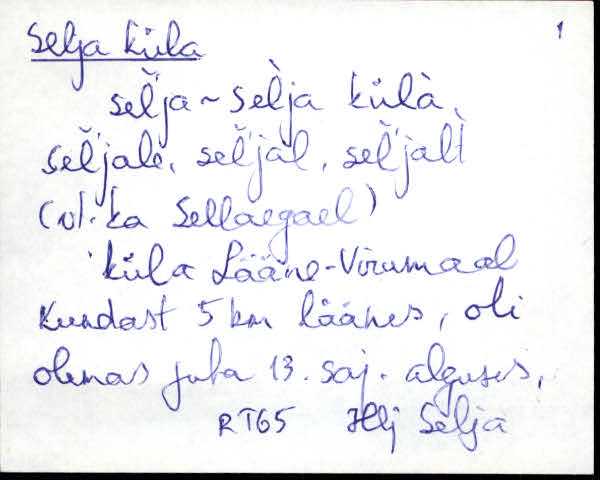 Selja küla 1
sel̆ja ~ sèlja külà,
sel̆jale, sel̆jal, sel̆jalt
(vl. ka Sellaegael)
küla Lääne-Virumaal
Kundast 5 km läänes, oli
olemas juba 13. saj. alguses,
RT65 Hlj Selja